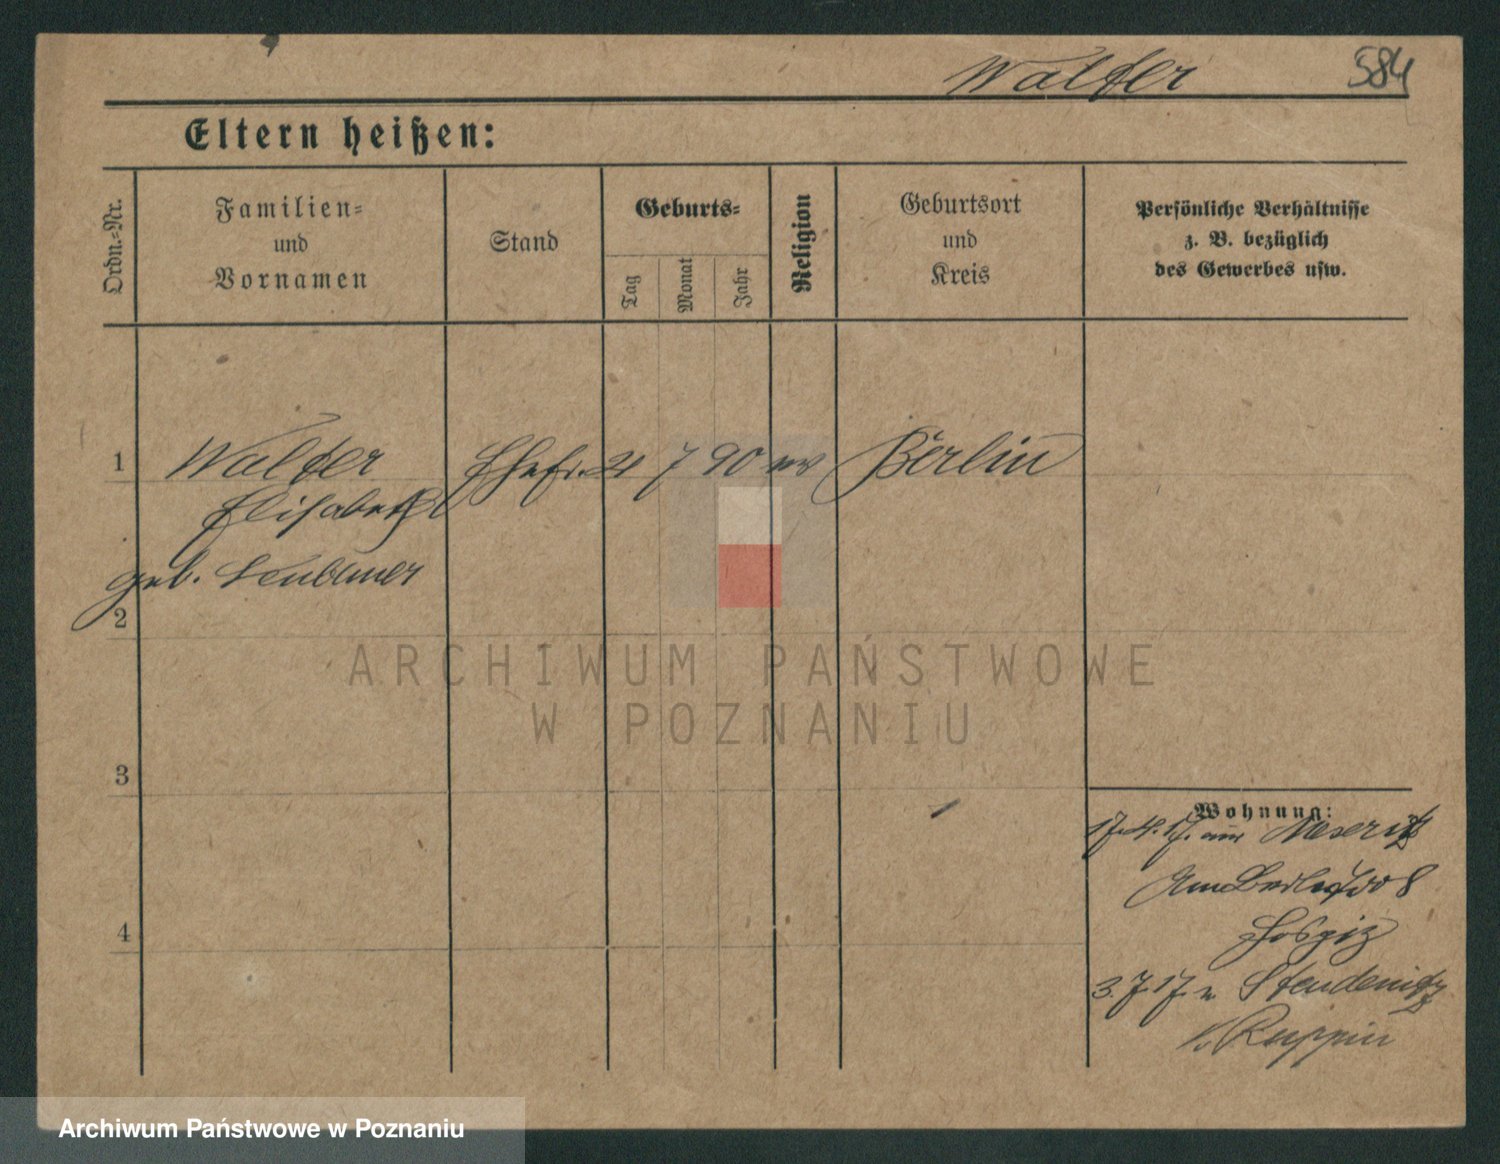 Walter 584
Eltern heißen:
Ordn.-Nr.
Familien-
und
Vornamen
Stand
Geburts-
Tag
Monat
Jahr
Religion
Geburtsort
und
Kreis
Persönliche Verhältnisse
z. B. bezüglich
des Gewerbes usw.
1 Walter Ehefr. 21 7 90 ev Berlin
Elisabeth
geb.
2
ARCHIWUM PAŃSTWOWE
W POZNANIU
3
Wohnung:
17.4.17. aus Meseritz
Am 8
Hospiz
4
3.7.17. n Steudenitz
b. Ruppin
Archiwum Państwowe w Poznaniu